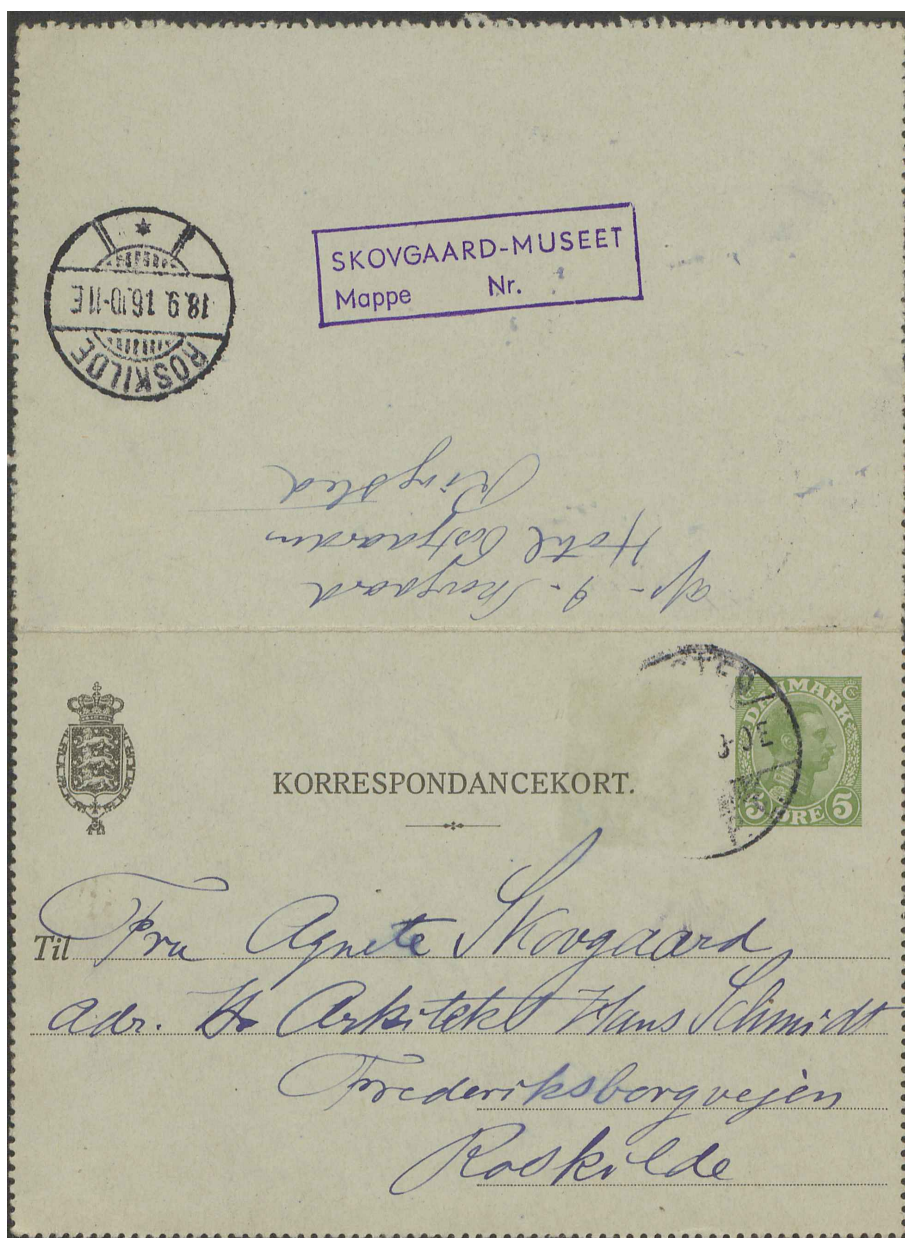 SKOVGAARD-MUSEET
Mappe Nr.
18.9.16.10-11E
ROSKILDE
Skovgaard
Hotel Postgaarden
Ringsted
DANMARK
5 ØRE 5
KORRESPONDANCEKORT.
Til Fru Agnete Skovgaard
adr. Hr Arkitekt Hans Schmidt
Frederiksborgvejen
Roskilde